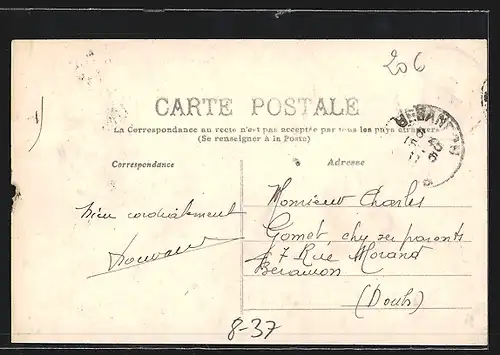 206
CARTE POSTALE
La Correspondance au recto n'est pas acceptée par tous les pays étrangers
(Se renseigner à la Poste)
Correspondance
Adresse
BESANÇON
bien cordialement
Monsieur Charles
Gomet, chez ses parents
7 Rue Morand
Besançon
(Doubs)
8-37